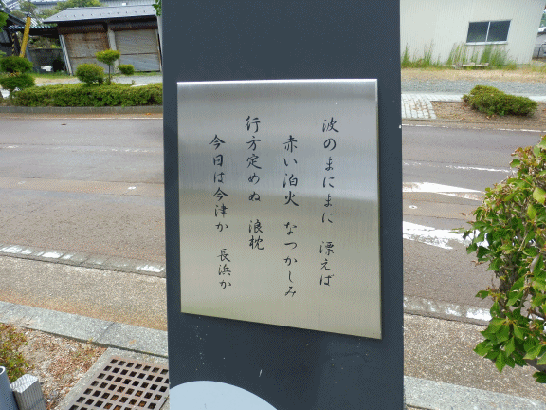 波のまにまに 漂えば
赤い泊火 なつかしみ
行方定めぬ 浪枕
今日は今津か 長浜か